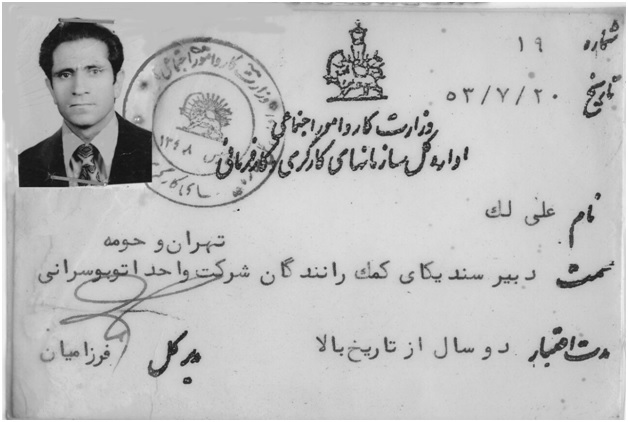 شماره ۱۹
تاریخ ۵۳/۷/۲۰
وزارت کار و امور اجتماعی
اداره کل سازمانهای کارگری و کارفرمائی
وزارت کار و امور اجتماعی
۱۳۴۸
نام علی لك
تهران و حومه
سمت دبیر سندیکای کمك رانندگان شرکت واحد اتوبوسرانی
مدت اعتبار دو سال از تاریخ بالا
مدیر کل فرزامیان